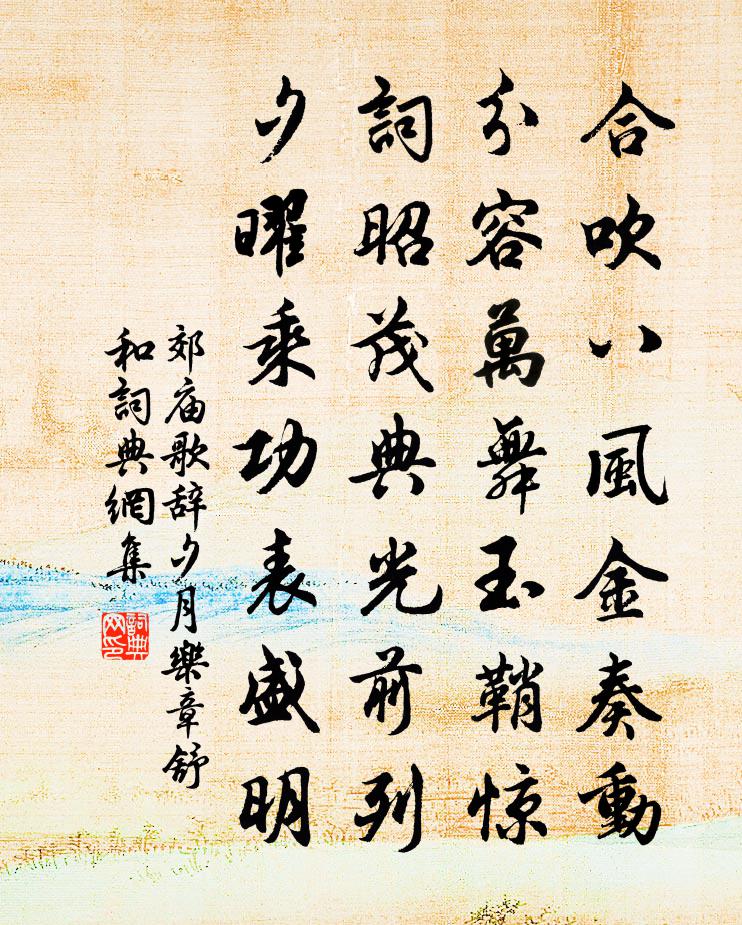 合吹八風金奏動
分容萬舞玉鞘惊
詞昭茂典光前列
夕曜乘功表盛明
郊庙歌辞夕月樂章舒
和詞典網集
詞典
网印